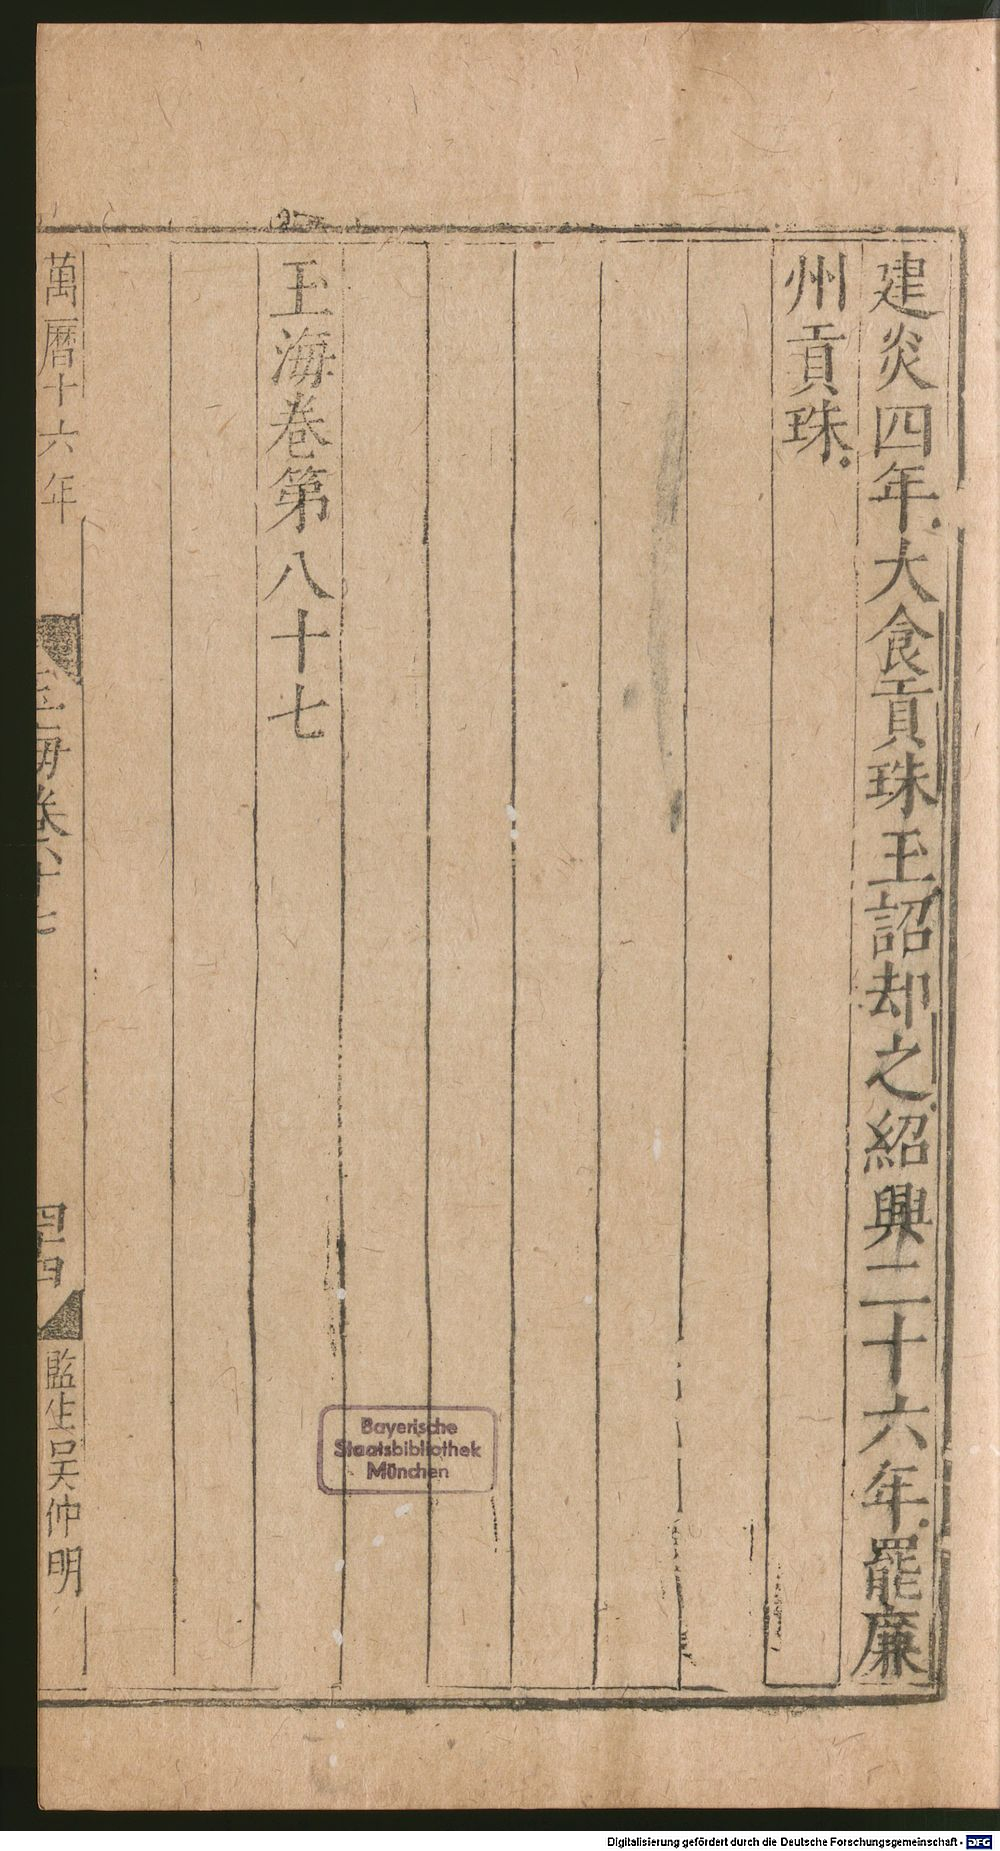 建炎四年大食貢珠玉詔却之紹興二十六年罷廉
州貢珠
玉海卷第八十七
萬曆十六年
玉海卷八十七
四十四
監生吳仲明
Bayerische
Staatsbibliothek
München
Digitalisierung gefördert durch die Deutsche Forschungsgemeinschaft - DFG